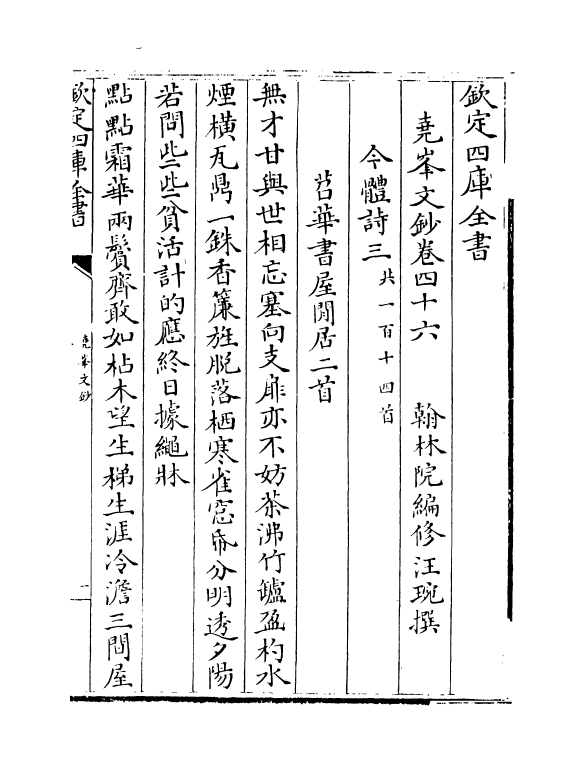 欽定四庫全書
堯峯文鈔卷四十六　翰林院編修汪琬撰
今體詩三共一百十四首
苕華書屋閒居二首
無才甘與世相忘塞向支扉亦不妨茶沸竹罏盈杓水
煙橫瓦鼎一銖香簾旌脫落栖寒雀窓紙分明透夕陽
若問些些貧活計的應終日據繩牀
點點霜華兩鬢齊敢如枯木望生稊生涯冷澹三間屋
欽定四庫全書
堯峯文鈔
一